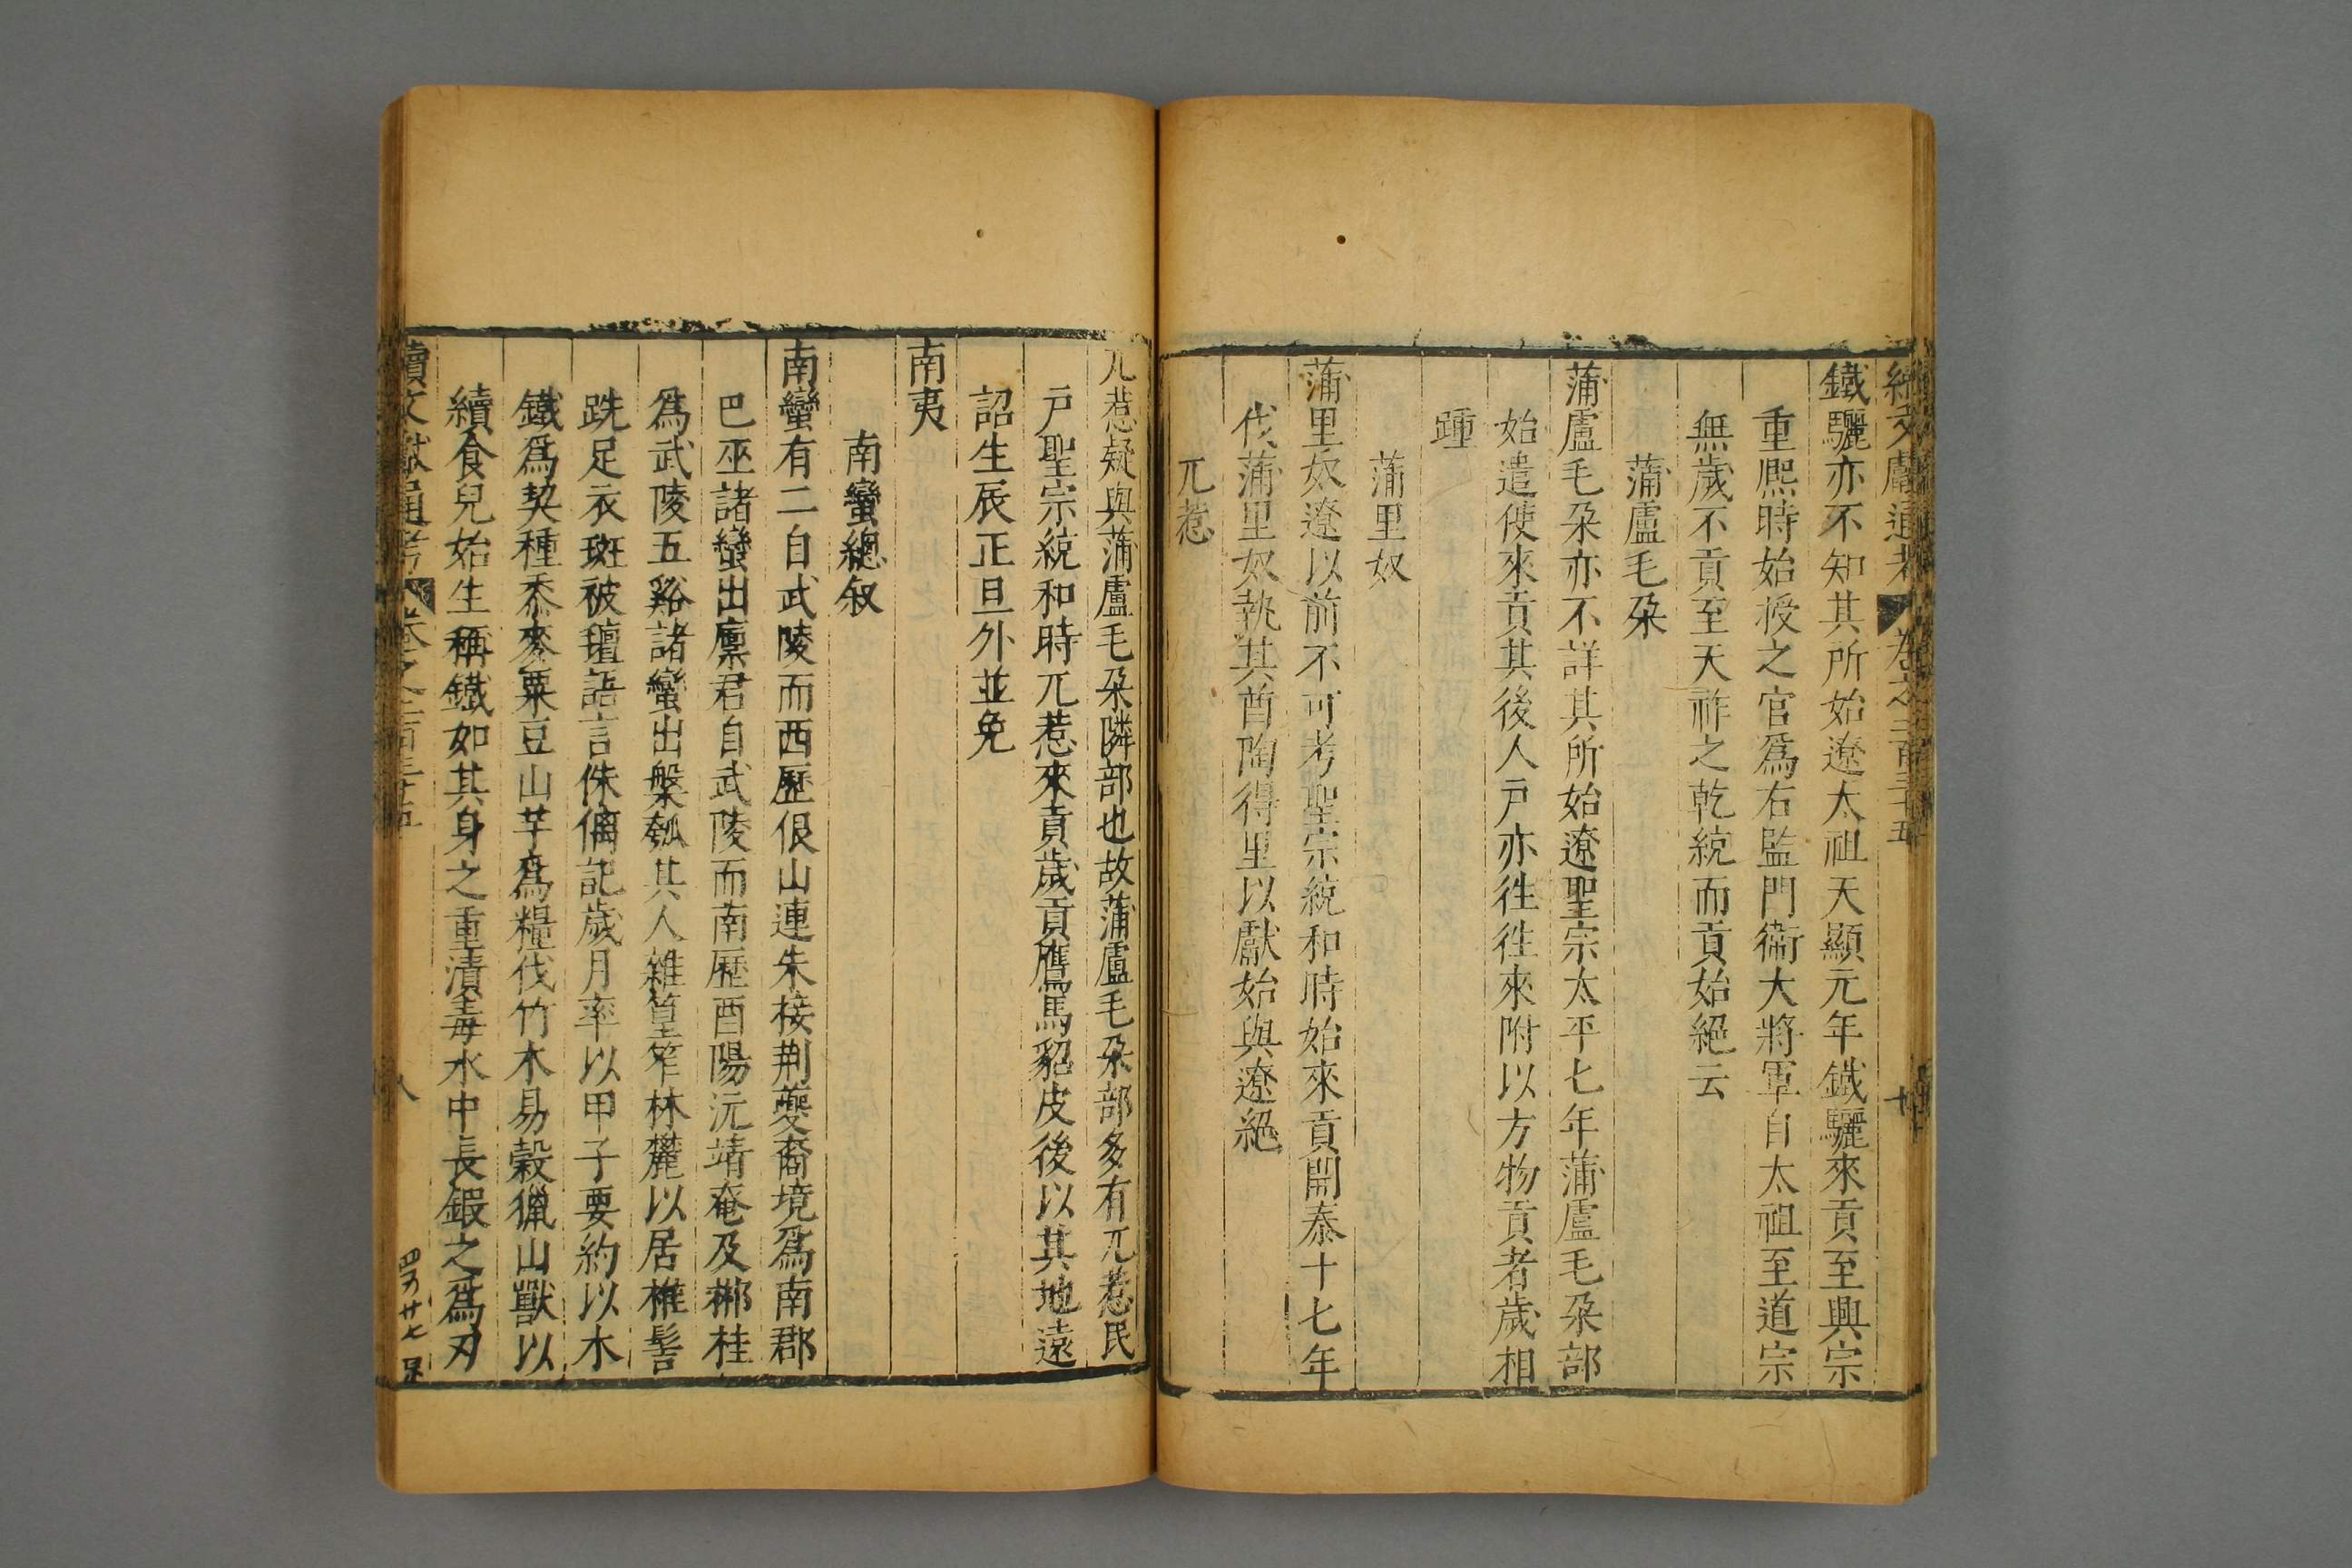 續文獻通考 卷之二百三十五 十
鐵驪亦不知其所始遼太祖天顯元年鐵驪來貢至興宗
重熈時始授之官爲右監門衛大將軍自太祖至道宗
無歲不貢至天祚之乾統而貢始絕云
蒲盧毛朶
蒲盧毛朶亦不詳其所始遼聖宗太平七年蒲盧毛朶部
始遣使來貢其後人戸亦徃徃來附以方物貢者歲相
踵
蒲里奴
蒲里奴遼以前不可考聖宗統和時始來貢開泰十七年
伐蒲里奴執其酋陶得里以獻始與遼絕
兀惹
兀惹疑與蒲盧毛朶隣部也故蒲盧毛朶部多有兀惹民
戸聖宗統和時兀惹來貢歲貢鷹馬貂皮後以其地遠
詔生辰正旦外並免
南夷
南蠻總叙
南蠻有二自武陵而西歷佷山連朱接荆夔裔境爲南郡
巴巫諸蠻出廪君自武陵而南歷酉陽沅靖奄及郴桂
爲武陵五谿諸蠻出槃瓠其人雜篁筰林麓以居椎髻
跣足衣斑被氊語言侏㒧記歲月率以甲子要約以木
鐵爲契種黍麥粟豆山芋爲糧伐竹木易穀獵山獸以
續食兒始生稱鐵如其身之重漬毒水中長鍜之爲刃
續文獻通考 卷之二百三十五 八